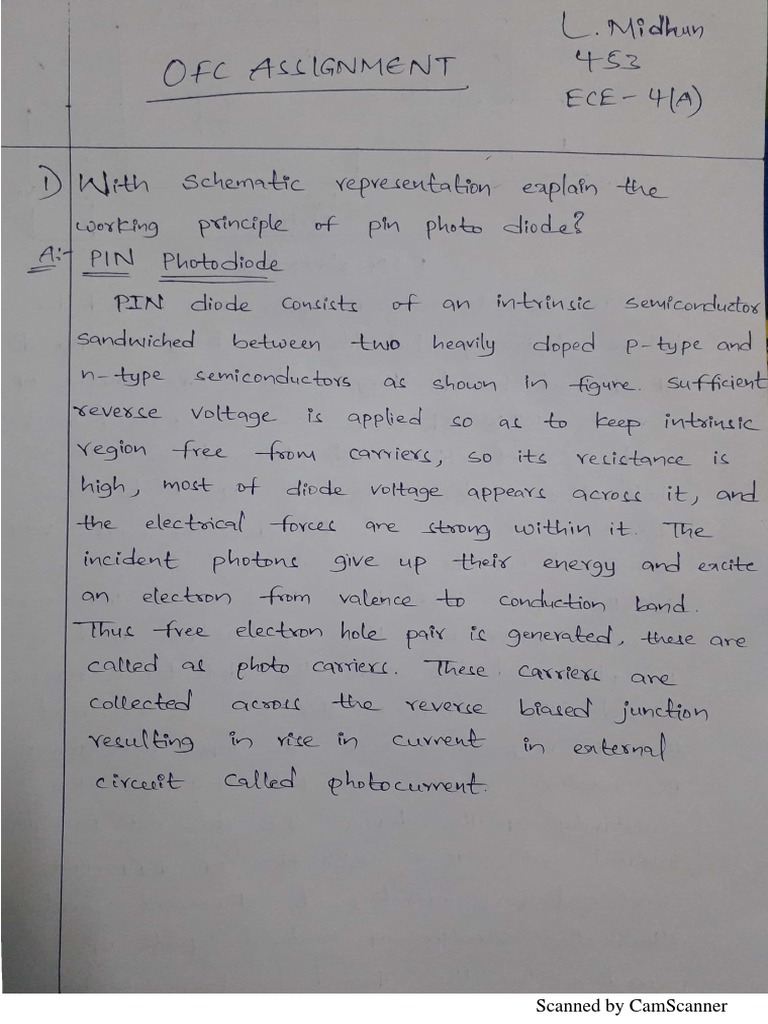 L. Midhun
OFC ASSIGNMENT
453
ECE - 4(A)
1) With schematic representation explain the
working principle of pin photo diode?
A:- PIN Photodiode
PIN diode consists of an intrinsic semiconductor
sandwiched between two heavily doped p-type and
n-type semiconductors as shown in figure. Sufficient
reverse voltage is applied so as to keep intrinsic
region free from carriers, so its resistance is
high, most of diode voltage appears across it, and
the electrical forces are strong within it. The
incident photons give up their energy and excite
an electron from valence to conduction band.
Thus free electron hole pair is generated, these are
called as photo carriers. These carriers are
collected across the reverse biased junction
resulting in rise in current in external
circuit called photocurrent.
Scanned by CamScanner